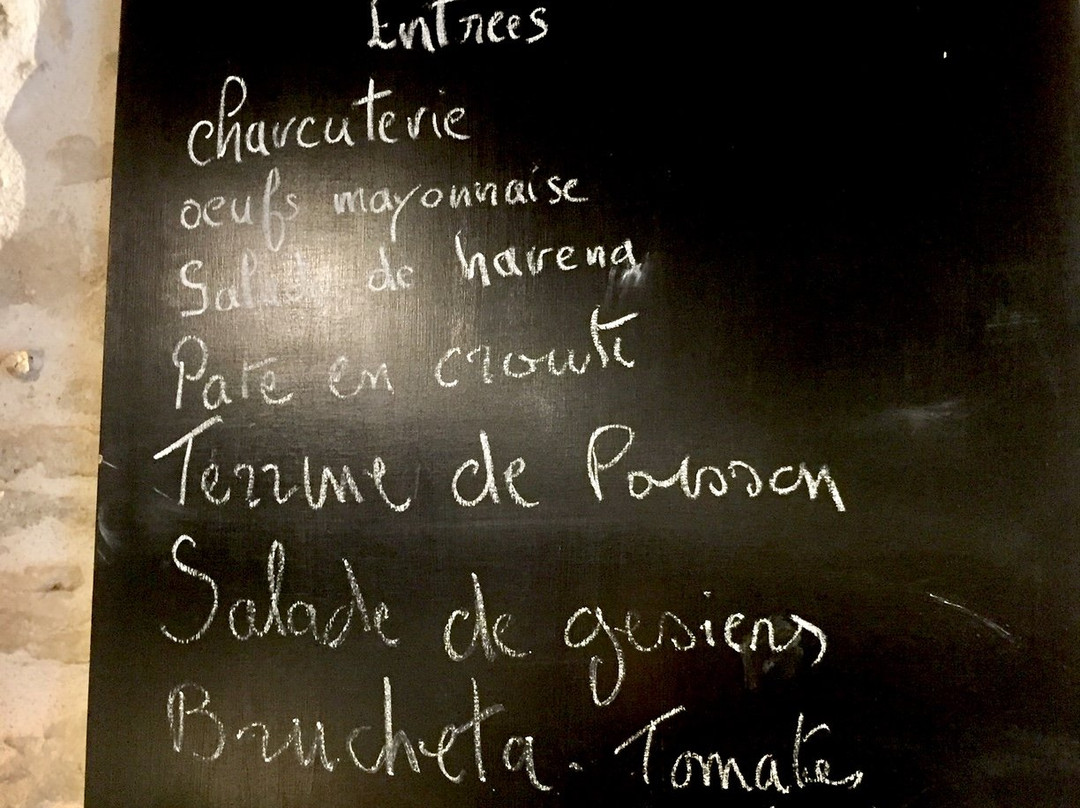 Entrees
charcuterie
oeufs mayonnaise
Salade de hareng
Pate en croute
Terrine de Poisson
Salade de gesiers
Brucheta. Tomates